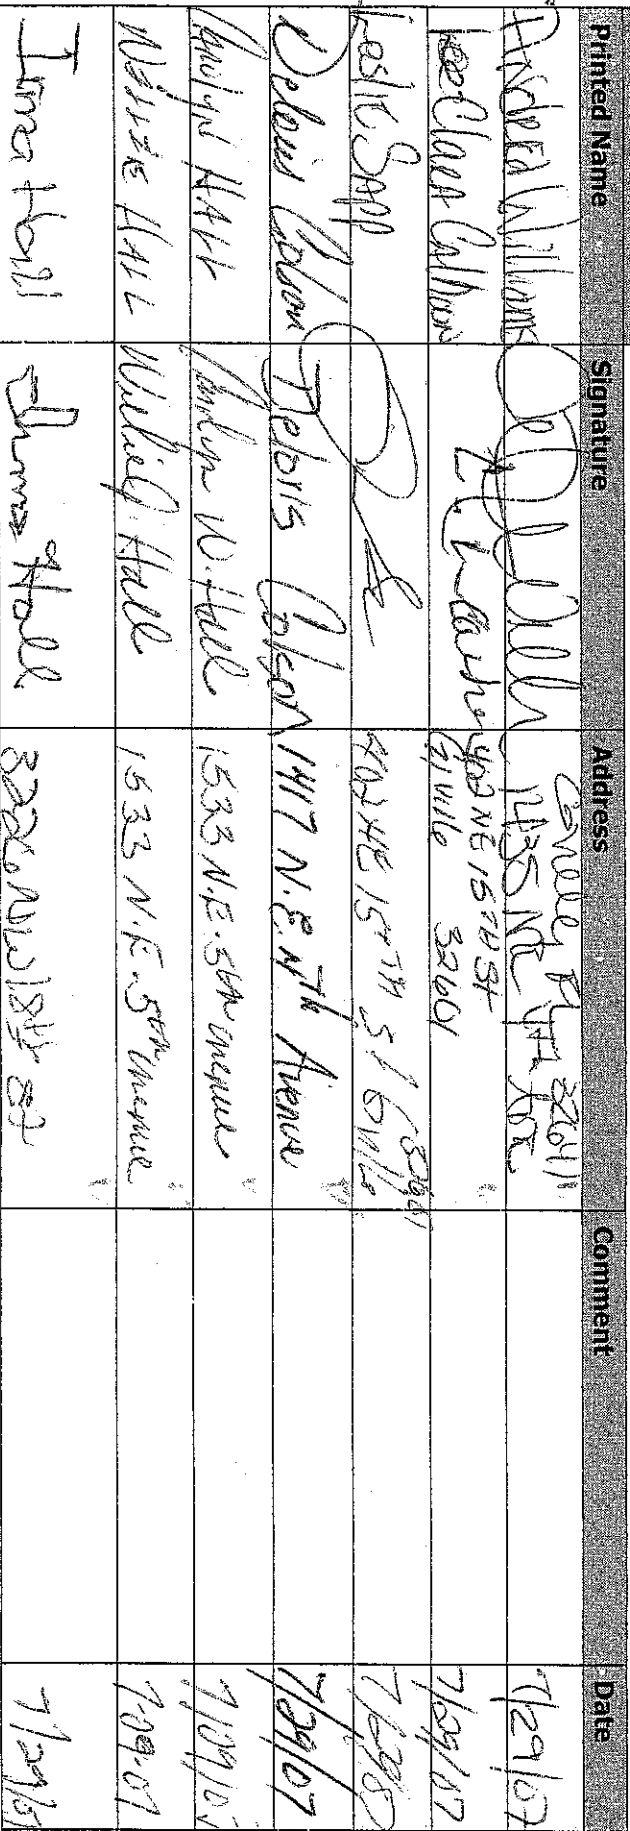 Printed Name Signature Address Comment Date
Andrea Williams 1435 NE 4th Ave 32641 7/29/07
LeeClara Calhoun 402 NE 15TH St 7/29/07
G'ville 32601
Leslie Sapp 402 NE 15TH St G'ville 7/29/07
Deloris Colson Deloris Colson 1417 N.E. 4th Avenue 7/29/07
Carolyn HALL Carolyn W. Hall 1533 N.E. 5th Avenue 7/29/07
Willie HALL Willie J. Hall 1533 N.E. 5th Avenue 7-29-07
Irma Hall Irma Hall NW 18th 7/29/07